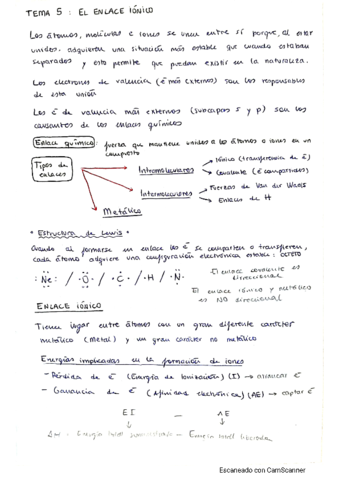 TEMA 5 : EL ENLACE IÓNICO
Los átomos, moléculas e iones se unen entre sí porque, al estar
unidos, adquieren una situación más estable que cuando estaban
separados y esto permite que puedan existir en la naturaleza.
Los electrones de valencia (ē más externos) son los responsables
de esta unión
Los ē de valencia más externos (subcapas s y p) son los
causantes de los enlaces químicos
Enlace químico fuerza que mantiene unidos a los átomos o iones en un
compuesto
Tipos de
enlaces
Intramoleculares
Iónico (transferencia de ē)
Covalente (ē compartidos)
Intermoleculares
Fuerzas de Van der Waals
Enlaces de H
Metálico
* Estructura de Lewis *
Cuando al formarse un enlace los ē se comparten o transfieren,
cada átomo adquiere una configuración electrónica estable: OCTETO
:Ne: / ·O· / ·C· / ·H / ·N·
El enlace covalente es
direccional
El enlace iónico y metálico
es NO direccional
ENLACE IÓNICO
Tienen lugar entre átomos con un gran diferente carácter
metálico (Metal) y un gran carácter no metálico
Energías implicadas en la formación de iones
- Pérdida de ē (Energía de Ionización) (I) → arrancar ē
- Ganancia de ē (Afinidad electrónica) (AE) → captar ē
EI — AE
↓ ↓
Energía total — Energía total liberada
Escaneado con CamScanner